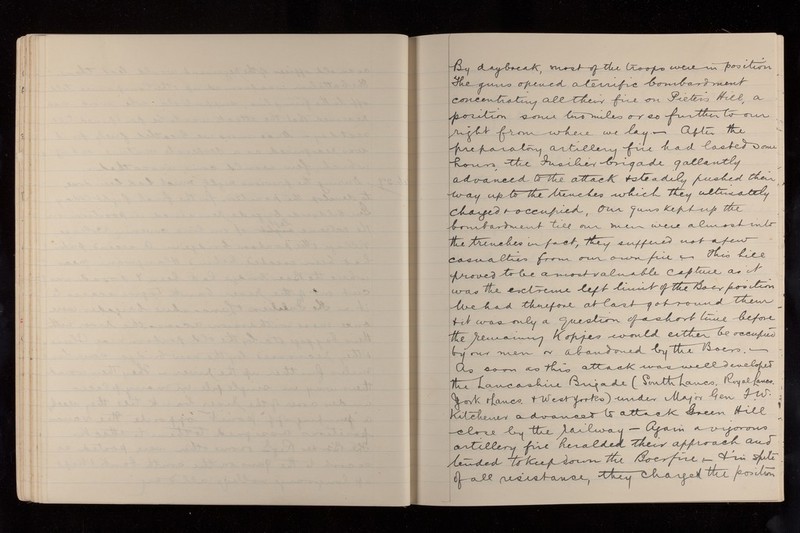 By daybreak, most of the troops were in position
The guns opened a terrific bombardment
concentrating all their fire on Pieters Hill, a
position some two miles or so further to our
right from where we lay — After the
preparatory artillery fire had lasted some
hours, the Fusilier brigade gallantly
advanced to the attack & steadily pushed their
way up to the trenches which they ultimately
charged & occupied, our guns kept up the
bombardment till our men were almost into
the trenches in fact, they suffered not a few
casualties from our own fire — This hill
proved to be a most valuable capture as it
was the extreme left limit of the Boer position
We had therefore at last got round them
& it was only a question of a short time before
the remaining Kopjes would either be occupied
by our men or abandoned by the Boers. —
As soon as this attack was well developed
the Lancashire Brigade (South Lancs, Royal Lancs.
York & Lancs & West Yorks) under Major Gen F.W.
Kitchener advanced to attack Green Hill
close by the railway — Again a vigorous
artillery fire heralded their approach and
tended to keep down the Boer fire — & in spite
of all resistance, they charged the position